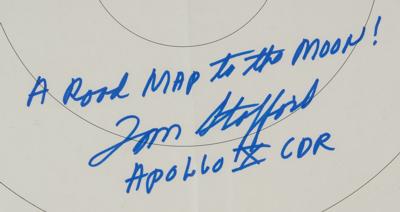 A ROAD MAP to the MOON!
Tom Stafford
APOLLO X CDR